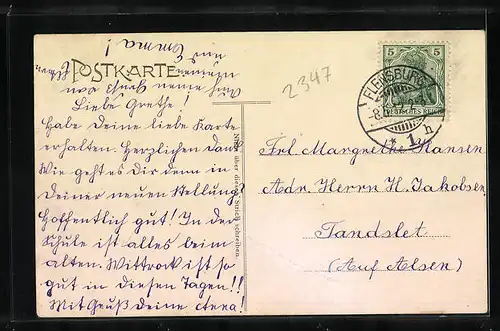 POSTKARTE
Emma!
Liebe Grethe!
Habe Deine liebe Karte
erhalten. Herzlichen Dank
Wie geht es Dir denn in
Deiner neuen Stellung?
Hoffentlich gut! In der
Schule ist alles beim
alten. Wittrock ist so
gut in diesen Tagen!!
Mit Gruß Deine
2347
5 5
FLENSBURG
DEUTSCHES REICH
Frl. Margrethe Hansen
Adr. Herrn H. Jakobsen
Tandslet
(Auf Alsen)